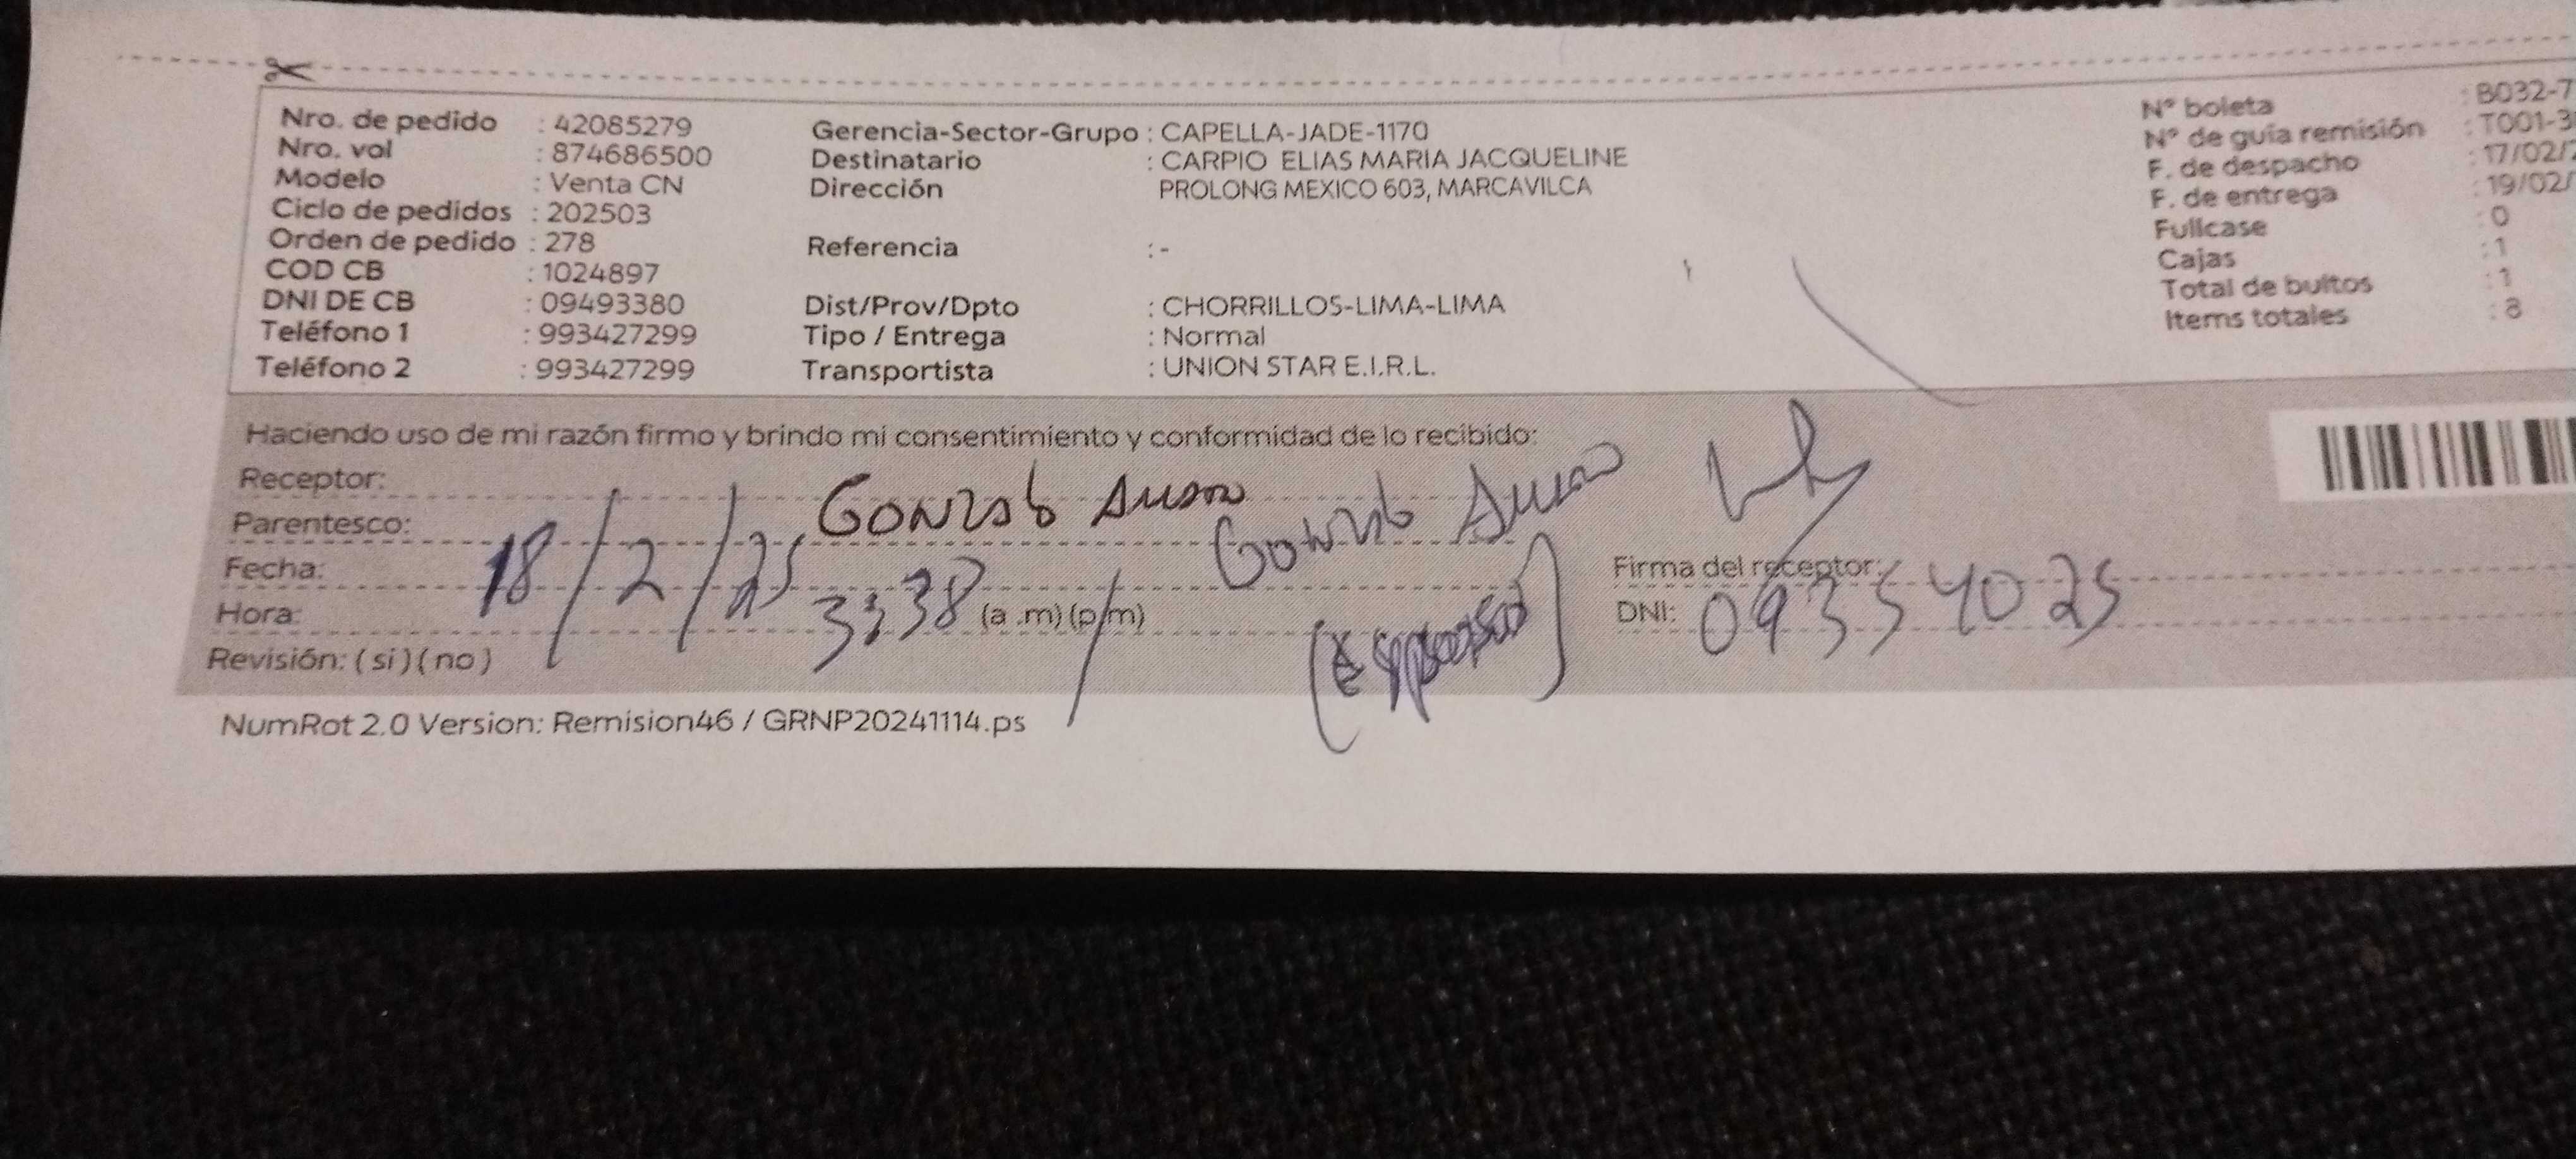 Nro. de pedido : 42085279
Nro. vol : 874686500
Modelo : Venta CN
Ciclo de pedidos : 202503
Orden de pedido : 278
COD CB : 1024897
DNI DE CB : 09493380
Teléfono 1 : 993427299
Teléfono 2 : 993427299
Gerencia-Sector-Grupo : CAPELLA-JADE-1170
Destinatario : CARPIO ELIAS MARIA JACQUELINE
Dirección PROLONG MEXICO 603, MARCAVILCA
Referencia : -
Dist/Prov/Dpto : CHORRILLOS-LIMA-LIMA
Tipo / Entrega : Normal
Transportista : UNION STAR E.I.R.L.
N° boleta : B032-7
N° de guía remisión : T001-3
F. de despacho : 17/02/2
F. de entrega : 19/02/
Fullcase : 0
Cajas : 1
Total de bultos : 1
Items totales : 8
Haciendo uso de mi razón firmo y brindo mi consentimiento y conformidad de lo recibido:
Receptor: Gonzalo
Parentesco: Gonzalo
Fecha: 18/2/25
Hora: 3:38 (a .m) (p/m)
Revisión: ( si ) ( no )
Firma del receptor:
DNI: 09354025
NumRot 2.0 Version: Remision46 / GRNP20241114.ps